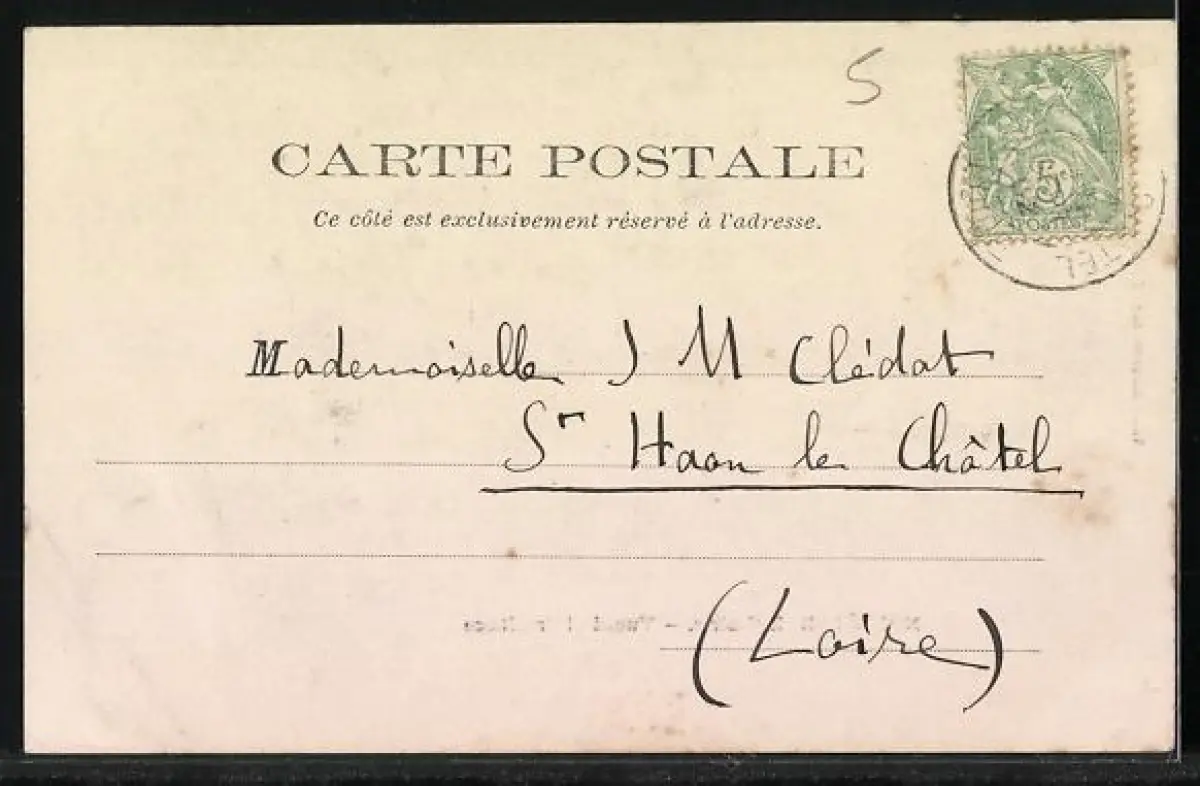 5
CARTE POSTALE
Ce côté est exclusivement réservé à l'adresse.
5c
POSTES
TEL
Mademoiselle J M Clédat
St Haon le Châtel
(Loire)